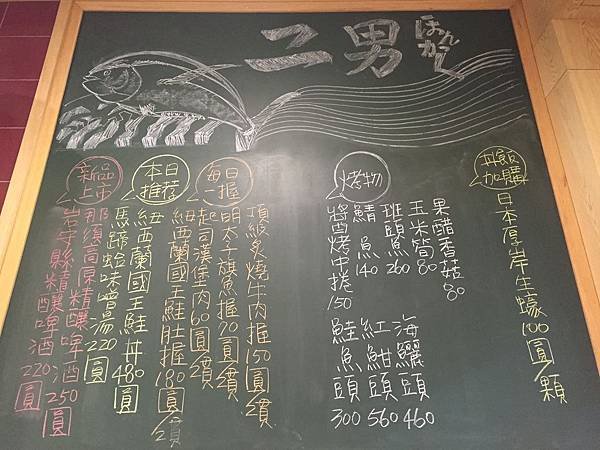 二男
ほんかく
丼飯加購
日本厚岸生蠔100圓/顆
烤物
果醋香菇80
玉米筍80
斑頭魚260
鯖魚140
醬烤中捲150
海鱺頭460
紅魽頭560
鮭魚頭300
每日一握
頂級炙燒牛肉握150圓/貫
明太子旗魚握70圓/貫
起司漢堡肉60圓/貫
紐西蘭國王鮭肚握180圓/貫
本日推薦
紐西蘭國王鮭丼480圓
馬蹄蛤味噌湯220圓
新品上市
那須高原精釀啤酒250圓
岩手縣精釀啤酒220圓